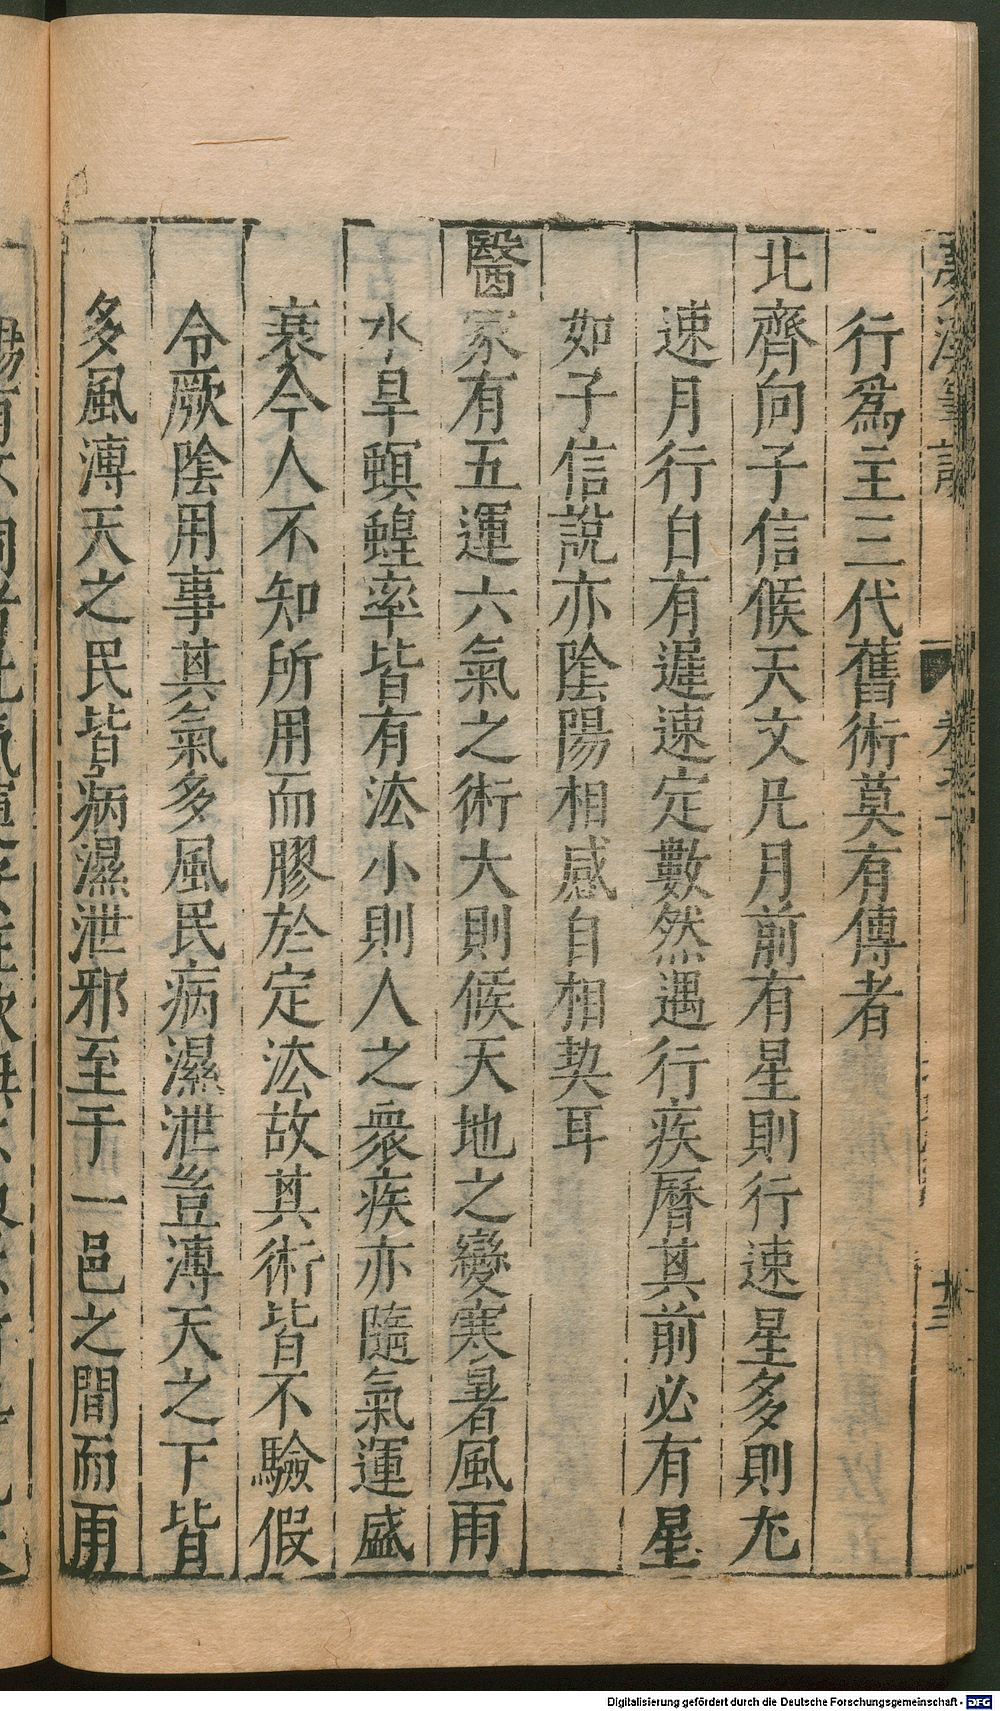 夢溪筆談
卷七
十三
行爲主三代舊術莫有傳者
北齊向子信候天文凡月前有星則行速星多則尤
速月行自有遲速定數然遇行疾曆其前必有星
如子信說亦陰陽相感自相契耳
醫家有五運六氣之術大則候天地之變寒暑風雨
水旱螟蝗率皆有法小則人之衆疾亦隨氣運盛
衰今人不知所用而膠於定法故其術皆不驗假
令厥陰用事其氣多風民病濕泄豈溥天之下皆
多風溥天之民皆病濕泄邪至于一邑之間而雨
Digitalisierung gefördert durch die Deutsche Forschungsgemeinschaft - DFG